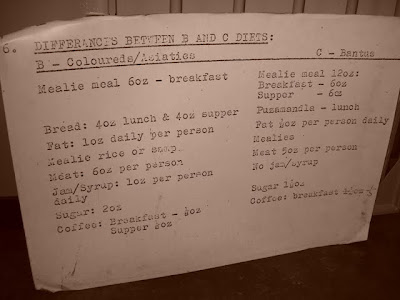 6. DIFFERANCES BETWEEN B AND C DIETS:
B - Coloureds/Asiatics
Mealie meal 6oz - breakfast
Bread: 4oz lunch & 4oz supper
Fat: 1oz daily per person
Mealie rice or samp
Meat: 6oz per person
Jam/Syrup: 1oz per person
daily
Sugar: 2oz
Coffee: Breakfast - ¼oz
Supper ¼oz
C - Bantus
Mealie meal 12oz:
Breakfast - 6oz
Supper - 6oz
Puzamandla - lunch
Fat ½oz per person daily
Mealies
Meat 5oz per person
No jam/syrup
Sugar 1½oz
Coffee: breakfast